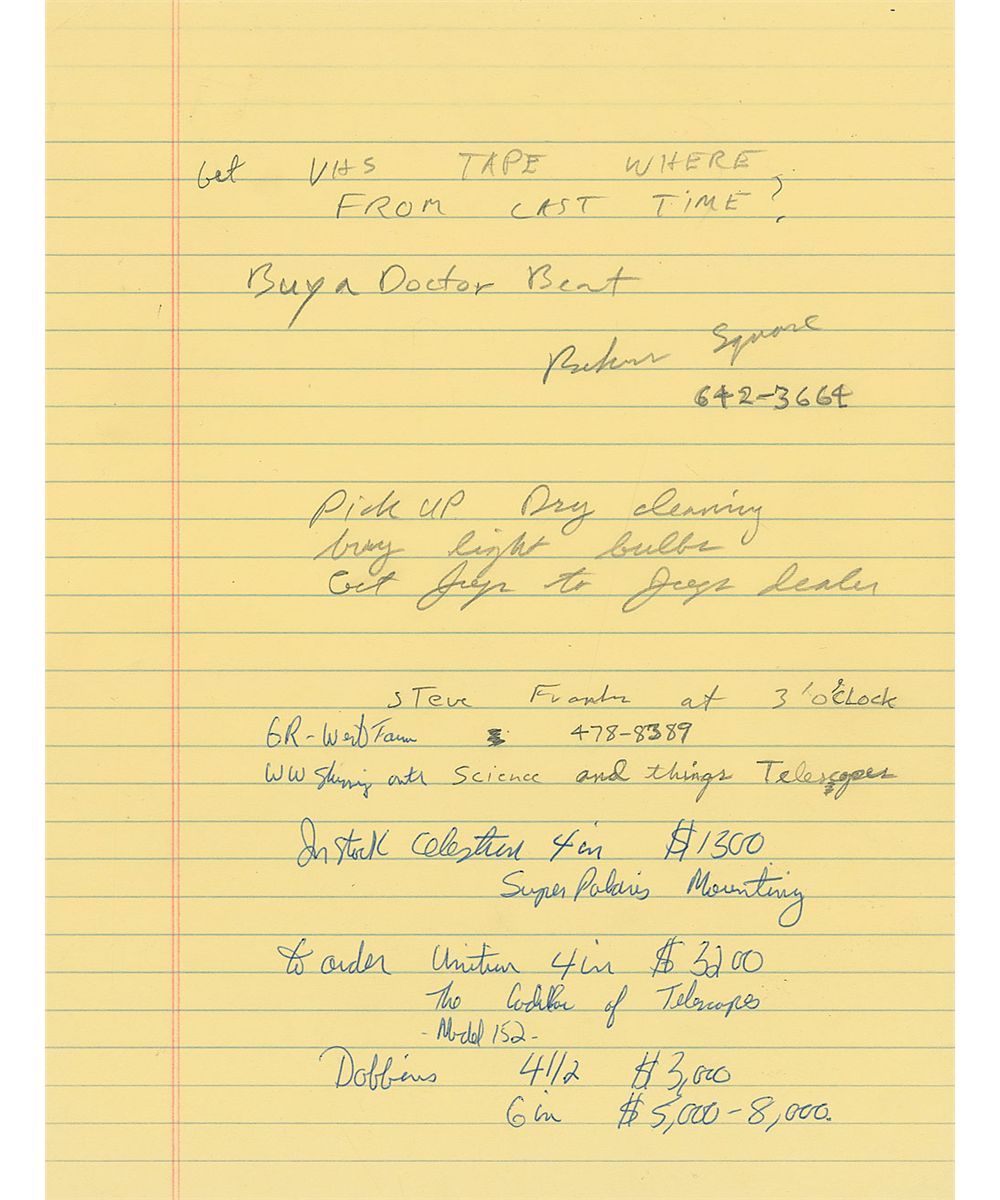 Get VHS TAPE WHERE
FROM LAST TIME?
Buy a Doctor Beat
Square
642-3664
Pick UP Dry cleaning
buy light bulbs
Get Jeep to Jeep dealer
STeve at 3 'o'CLOCK
GR-West Farm 478-8389
WW Science and things Telescopes
In Stock Celestron 4 in $1300
Super Polaris Mounting
to order Unitron 4 in $3200
The Cadillac of Telescopes
- Model 152 -
Dobbins 4 1/2 $3,000
6 in $5,000-8,000.